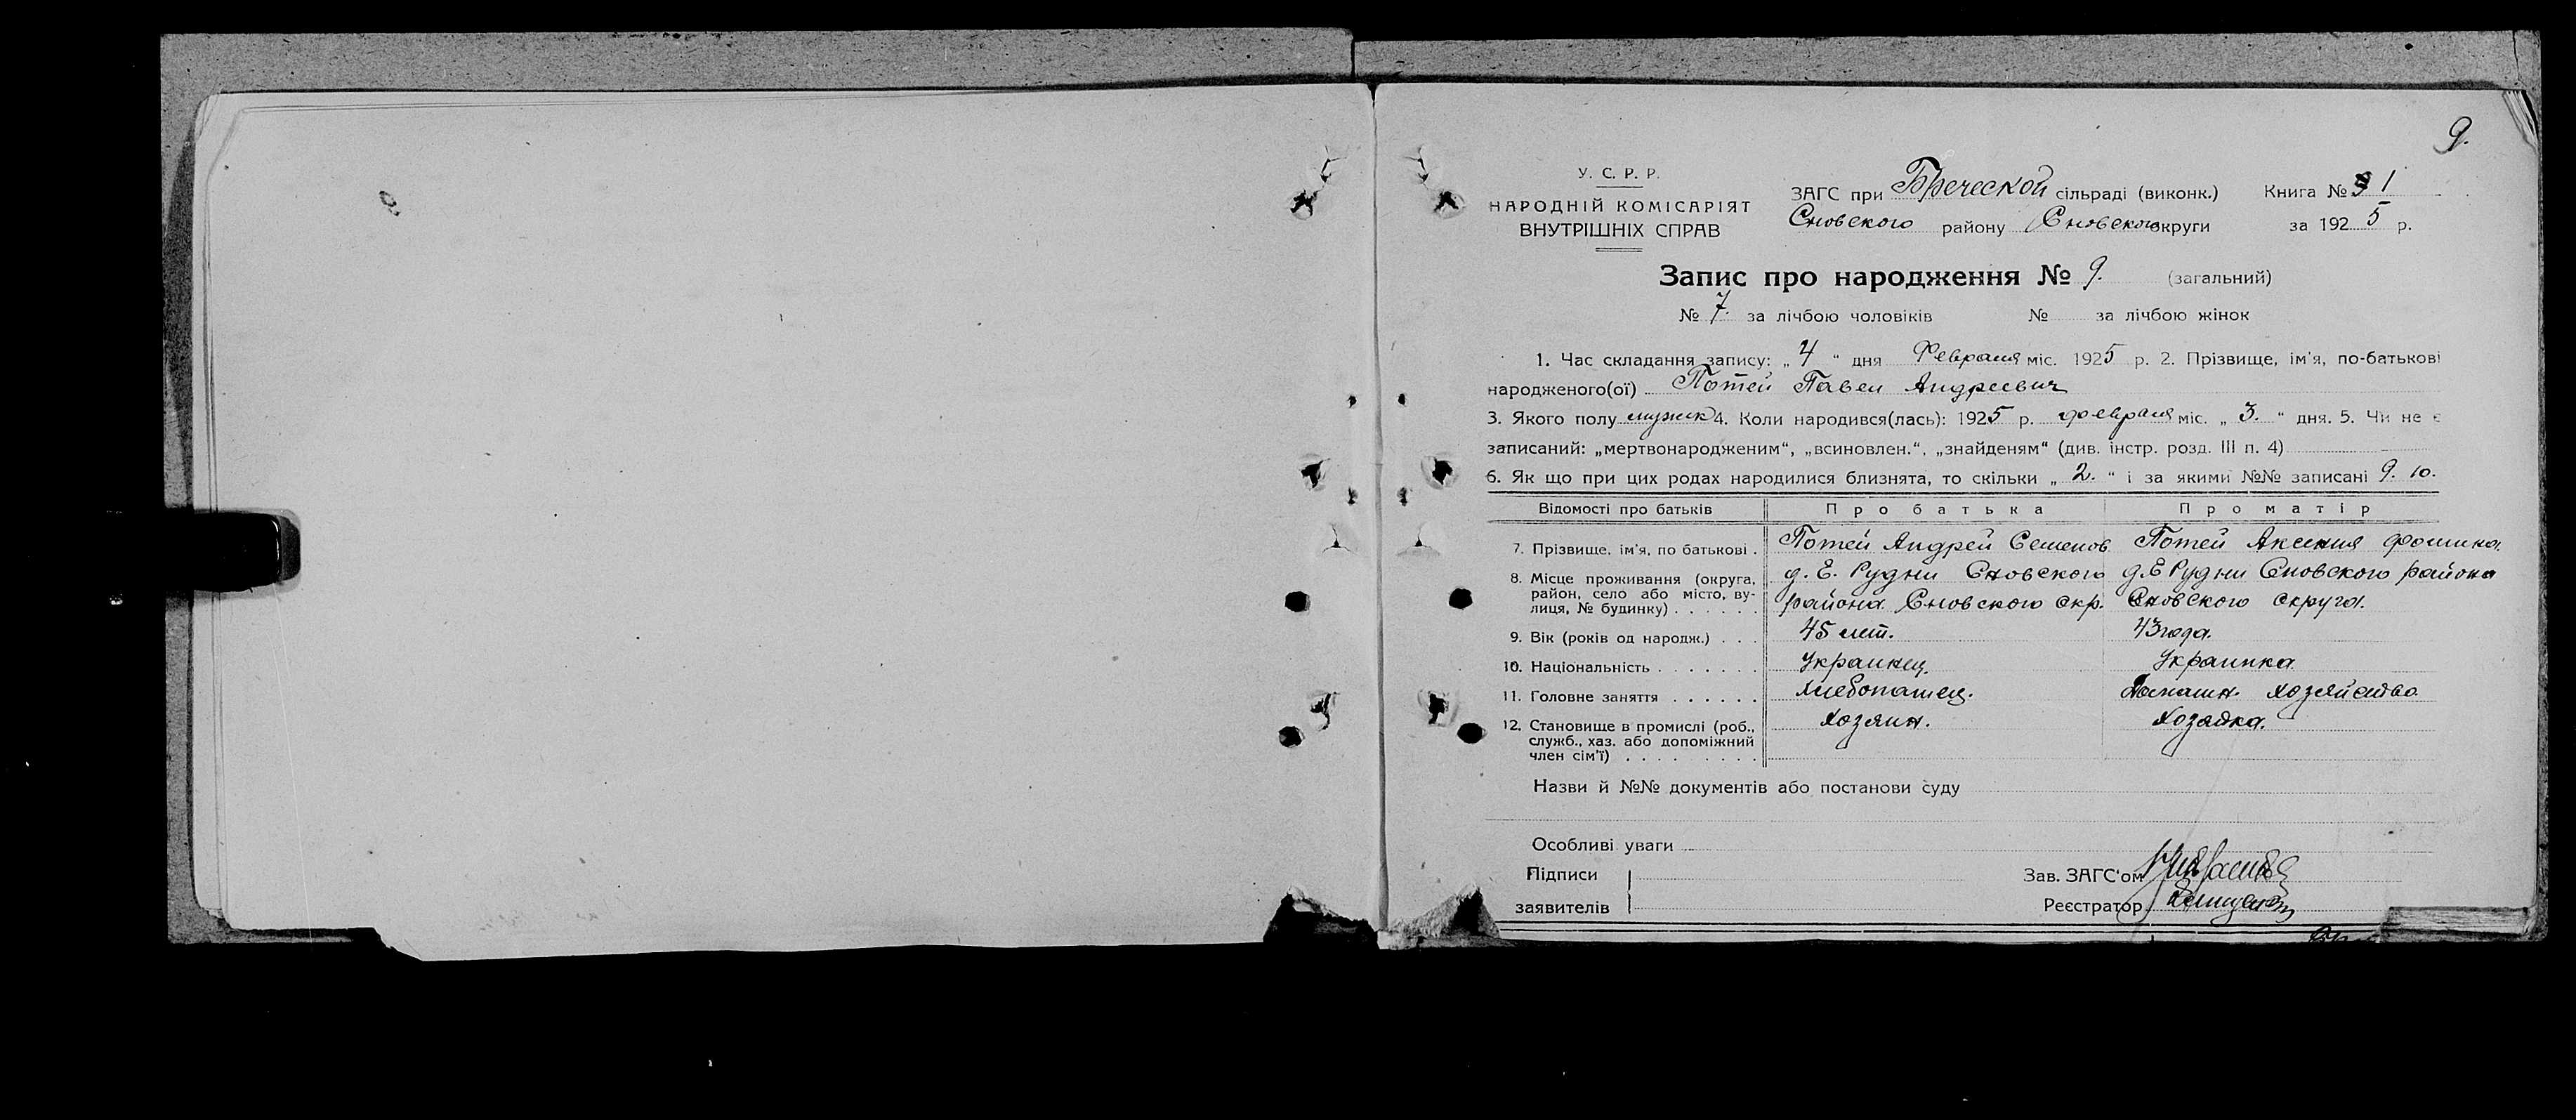 9.
У. С. Р. Р.
НАРОДНІЙ КОМІСАРІЯТ
ВНУТРІШНІХ СПРАВ
ЗАГС при Бреческой сільраді (виконк.) Книга № 1
Сновского району Сновского округи за 1925 р.
Запис про народження № 9. (загальний)
№ 7. за лічбою чоловіків № за лічбою жінок
1. Час складання запису: „ 4 “ дня Февраля міс. 1925 р. 2. Прізвище, ім'я, по-батькові
народженого(ої) Потей Павел Андреевич
3. Якого полу мужск 4. Коли народився(лась): 1925 р. февраля міс. „ 3. “ дня. 5. Чи не є
записаний: „мертвонародженим“, „всиновлен.“, „знайденям“ (див. інстр. розд. III п. 4)
6. Як що при цих родах народилися близнята, то скільки „ 2. “ і за якими №№ записані 9. 10.
Відомості про батьків Про батька Про матір
7. Прізвище, ім'я, по батькові . Потей Андрей Семенов. Потей Аксения Фомина.
8. Місце проживання (округа, район, село або місто, вулиця, № будинку) . . . . . . д. Е. Рудни Сновского района Сновского окр. д. Е Рудни Сновского района Сновского округа.
9. Вік (років од народж.) . . . 45 лет. 43 года.
10. Національність . . . . . . . Украинец. Украинка
11. Головне заняття . . . . . . Хлебопашец. Домашн. хозяйство
12. Становище в промислі (роб., служб., хаз. або допоміжний член сім'ї) . . . . . . . . Хозяин. Хозяйка.
Назви й №№ документів або постанови суду
Особливі уваги
Підписи
заявителів
Зав. ЗАГС'ом
Реєстратор